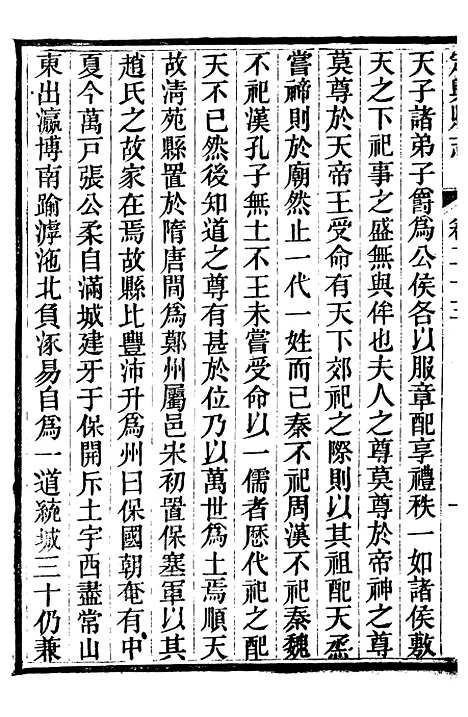 天子諸弟子爵爲公侯各以服章配享禮秩一如諸侯敷
天之下祀事之盛無與侔也夫人之尊莫尊於帝神之尊
莫尊於天帝王受命有天下郊祀之際則以其祖配天烝
嘗禘則於廟然止一代一姓而已秦不祀周漢不祀秦魏
不祀漢孔子無土不王未嘗受命以一儒者歷代祀之配
天不已然後知道之尊有甚於位乃以萬世爲土焉順天
故清苑縣置於隋唐間爲鄭州屬邑宋初置保塞軍以其
趙氏之故家在焉故縣比豐沛升爲州曰保國朝奄有中
夏今萬戶張公柔自滿城建牙于保開斥土宇西盡常山
東出瀛博南踰滹沲北負涿易自爲一道統城三十仍兼